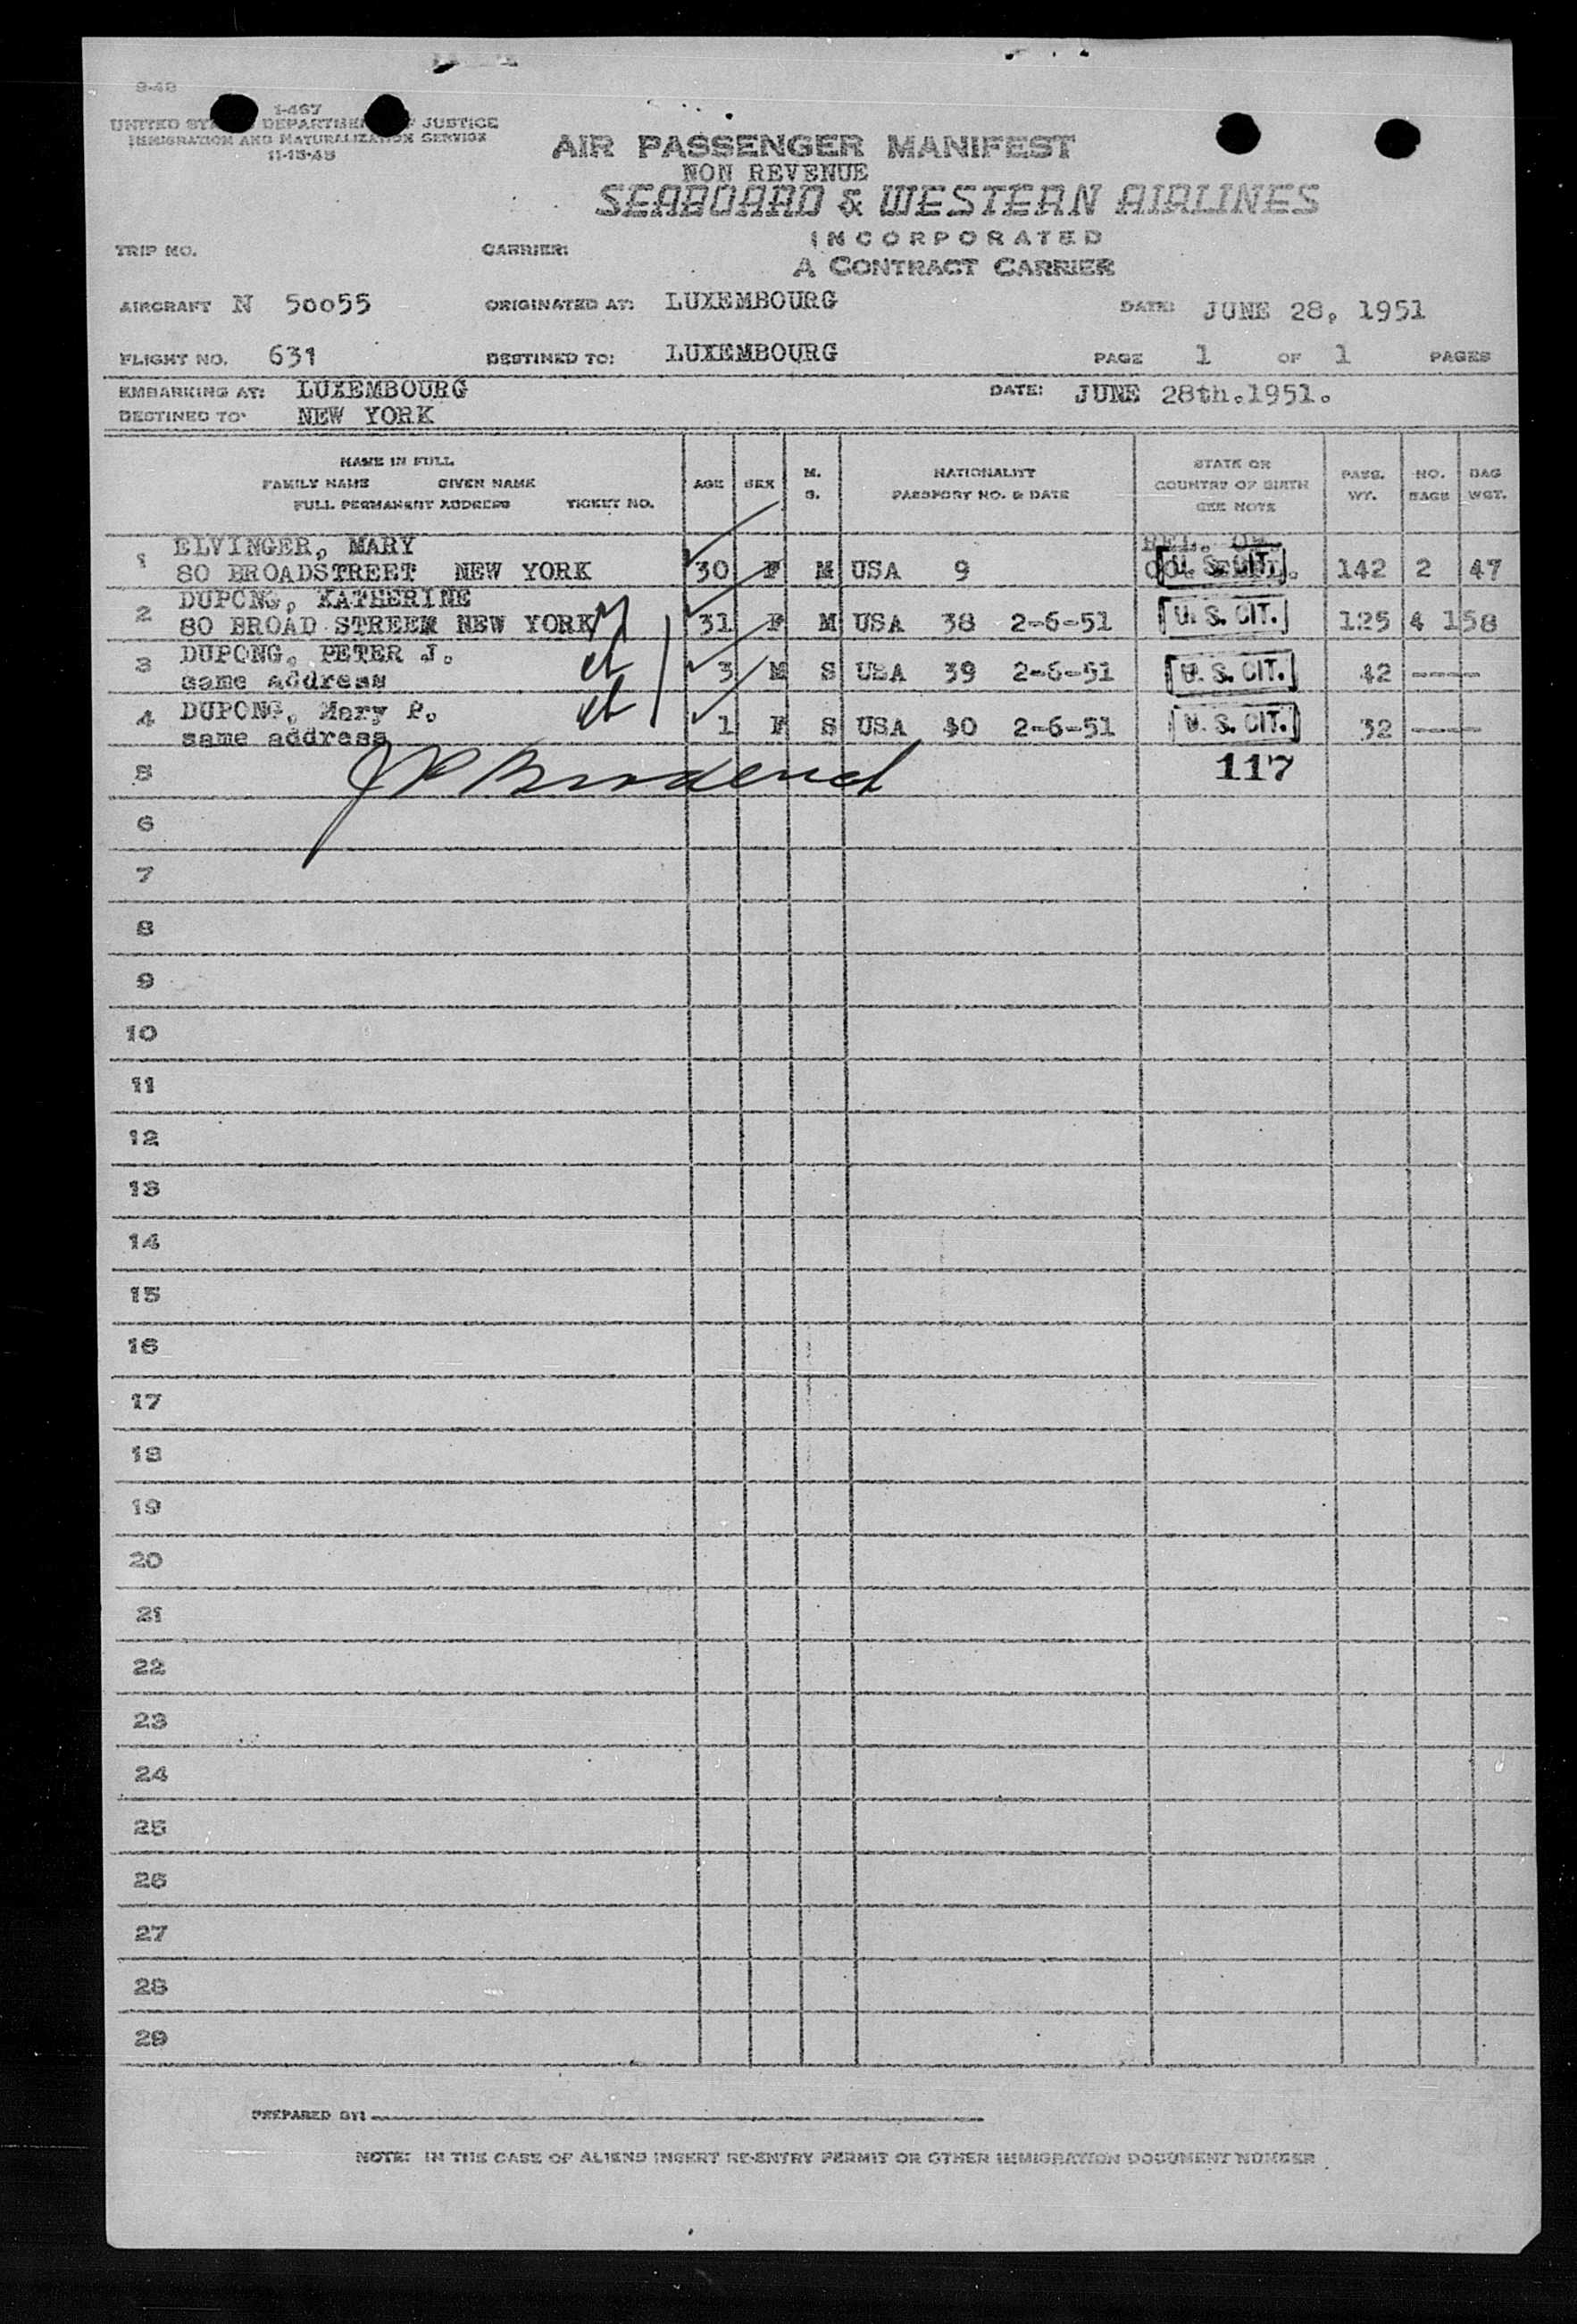 9-48
I-467
UNITED STA DEPARTMEN JUSTICE
IMMIGRATION AND NATURALIZATION SERVICE
11-15-48
AIR PASSENGER MANIFEST
NON REVENUE
SEABOARD & WESTERN AIRLINES
INCORPORATED
A CONTRACT CARRIER
TRIP NO. CARRIER:
AIRCRAFT N 50055 ORIGINATED AT: LUXEMBOURG DATE: JUNE 28, 1951
FLIGHT NO. 631 DESTINED TO: LUXEMBOURG PAGE 1 OF 1 PAGES
EMBARKING AT: LUXEMBOURG DATE: JUNE 28th.1951.
DESTINED TO: NEW YORK
NAME IN FULL
FAMILY NAME GIVEN NAME
FULL PERMANENT ADDRESS TICKET NO.
AGE SEX M. S.
NATIONALITY
PASSPORT NO. & DATE
STATE OR
COUNTRY OF BIRTH
SEE NOTE
PASS. WT. NO. BAGS BAG WGT.
1 ELVINGER, MARY
80 BROADSTREET NEW YORK 30 F M USA 9 U. S. CIT. 142 2 47
2 DUPONG, KATHERINE
80 BROAD STREEM NEW YORK 31 F M USA 38 2-6-51 U. S. CIT. 125 4 158
3 DUPONG, PETER J.
same address 3 M S USA 39 2-6-51 U. S. CIT. 42 ----
4 DUPONG, Mary P.
same address 1 F S USA 40 2-6-51 U. S. CIT. 32 ----
5 117
6
7
8
9
10
11
12
13
14
15
16
17
18
19
20
21
22
23
24
25
26
27
28
29
PREPARED BY:
NOTE: IN THE CASE OF ALIENS INSERT RE-ENTRY PERMIT OR OTHER IMMIGRATION DOCUMENT NUMBER